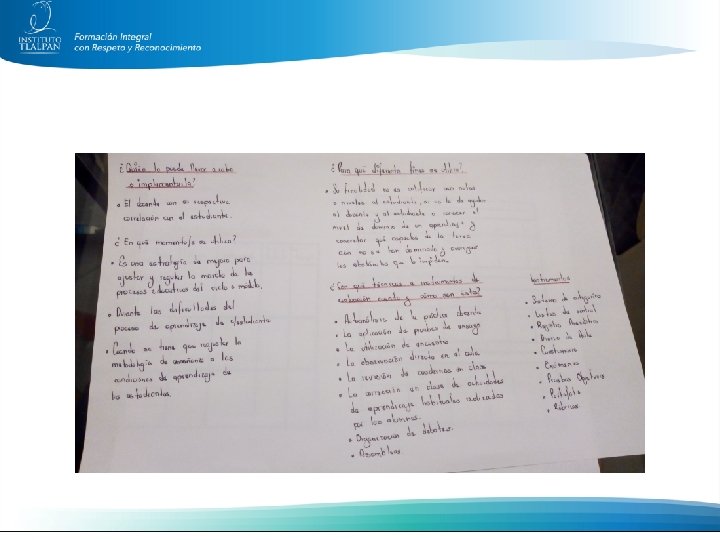 INSTITUTO
TLALPAN
Formación Integral
con Respeto y Reconocimiento
¿Quién lo puede llevar a cabo
o implementarla?
• El docente con su respectiva
correlación con el estudiante.
¿En qué momento/s se utiliza?
• Es una estrategia de mejora para
ajustar y regular la marcha de los
procesos educativos del ciclo o módulo.
• Durante las dificultades del
proceso de aprendizaje de c/estudiante
• Cuando se tiene que reajustar la
metodología de enseñanza a las
condiciones de aprendizaje de
los estudiantes.
¿Para qué diferentes fines se utiliza?
• Su finalidad no es calificar con notas
o niveles al estudiante, si no la de ayudar
al docente y al estudiante a conocer el
nivel de dominio de un aprendizaje y
concretar qué aspectos de la tarea
aún no se han dominado y averiguar
los obstáculos que lo impiden.
¿Con qué técnicas e instrumentos de
evaluación cuenta y cómo son estos?
• Autoanálisis de la práctica docente
• La aplicación de pruebas de ensayo
• La utilización de encuestas
• La observación directa en el aula
• La revisión de cuadernos en clase
• La corrección en clase de actividades
de aprendizaje habituales realizadas
por los alumnos.
• Organización de debates.
• Asambleas.
Instrumentos
• Sistema de categorías
• Listas de control
• Registro Anecdótico
• Diario de clase
• Cuestionarios
• Exámenes
• Pruebas Objetivas
• Portafolio
• Rúbricas.